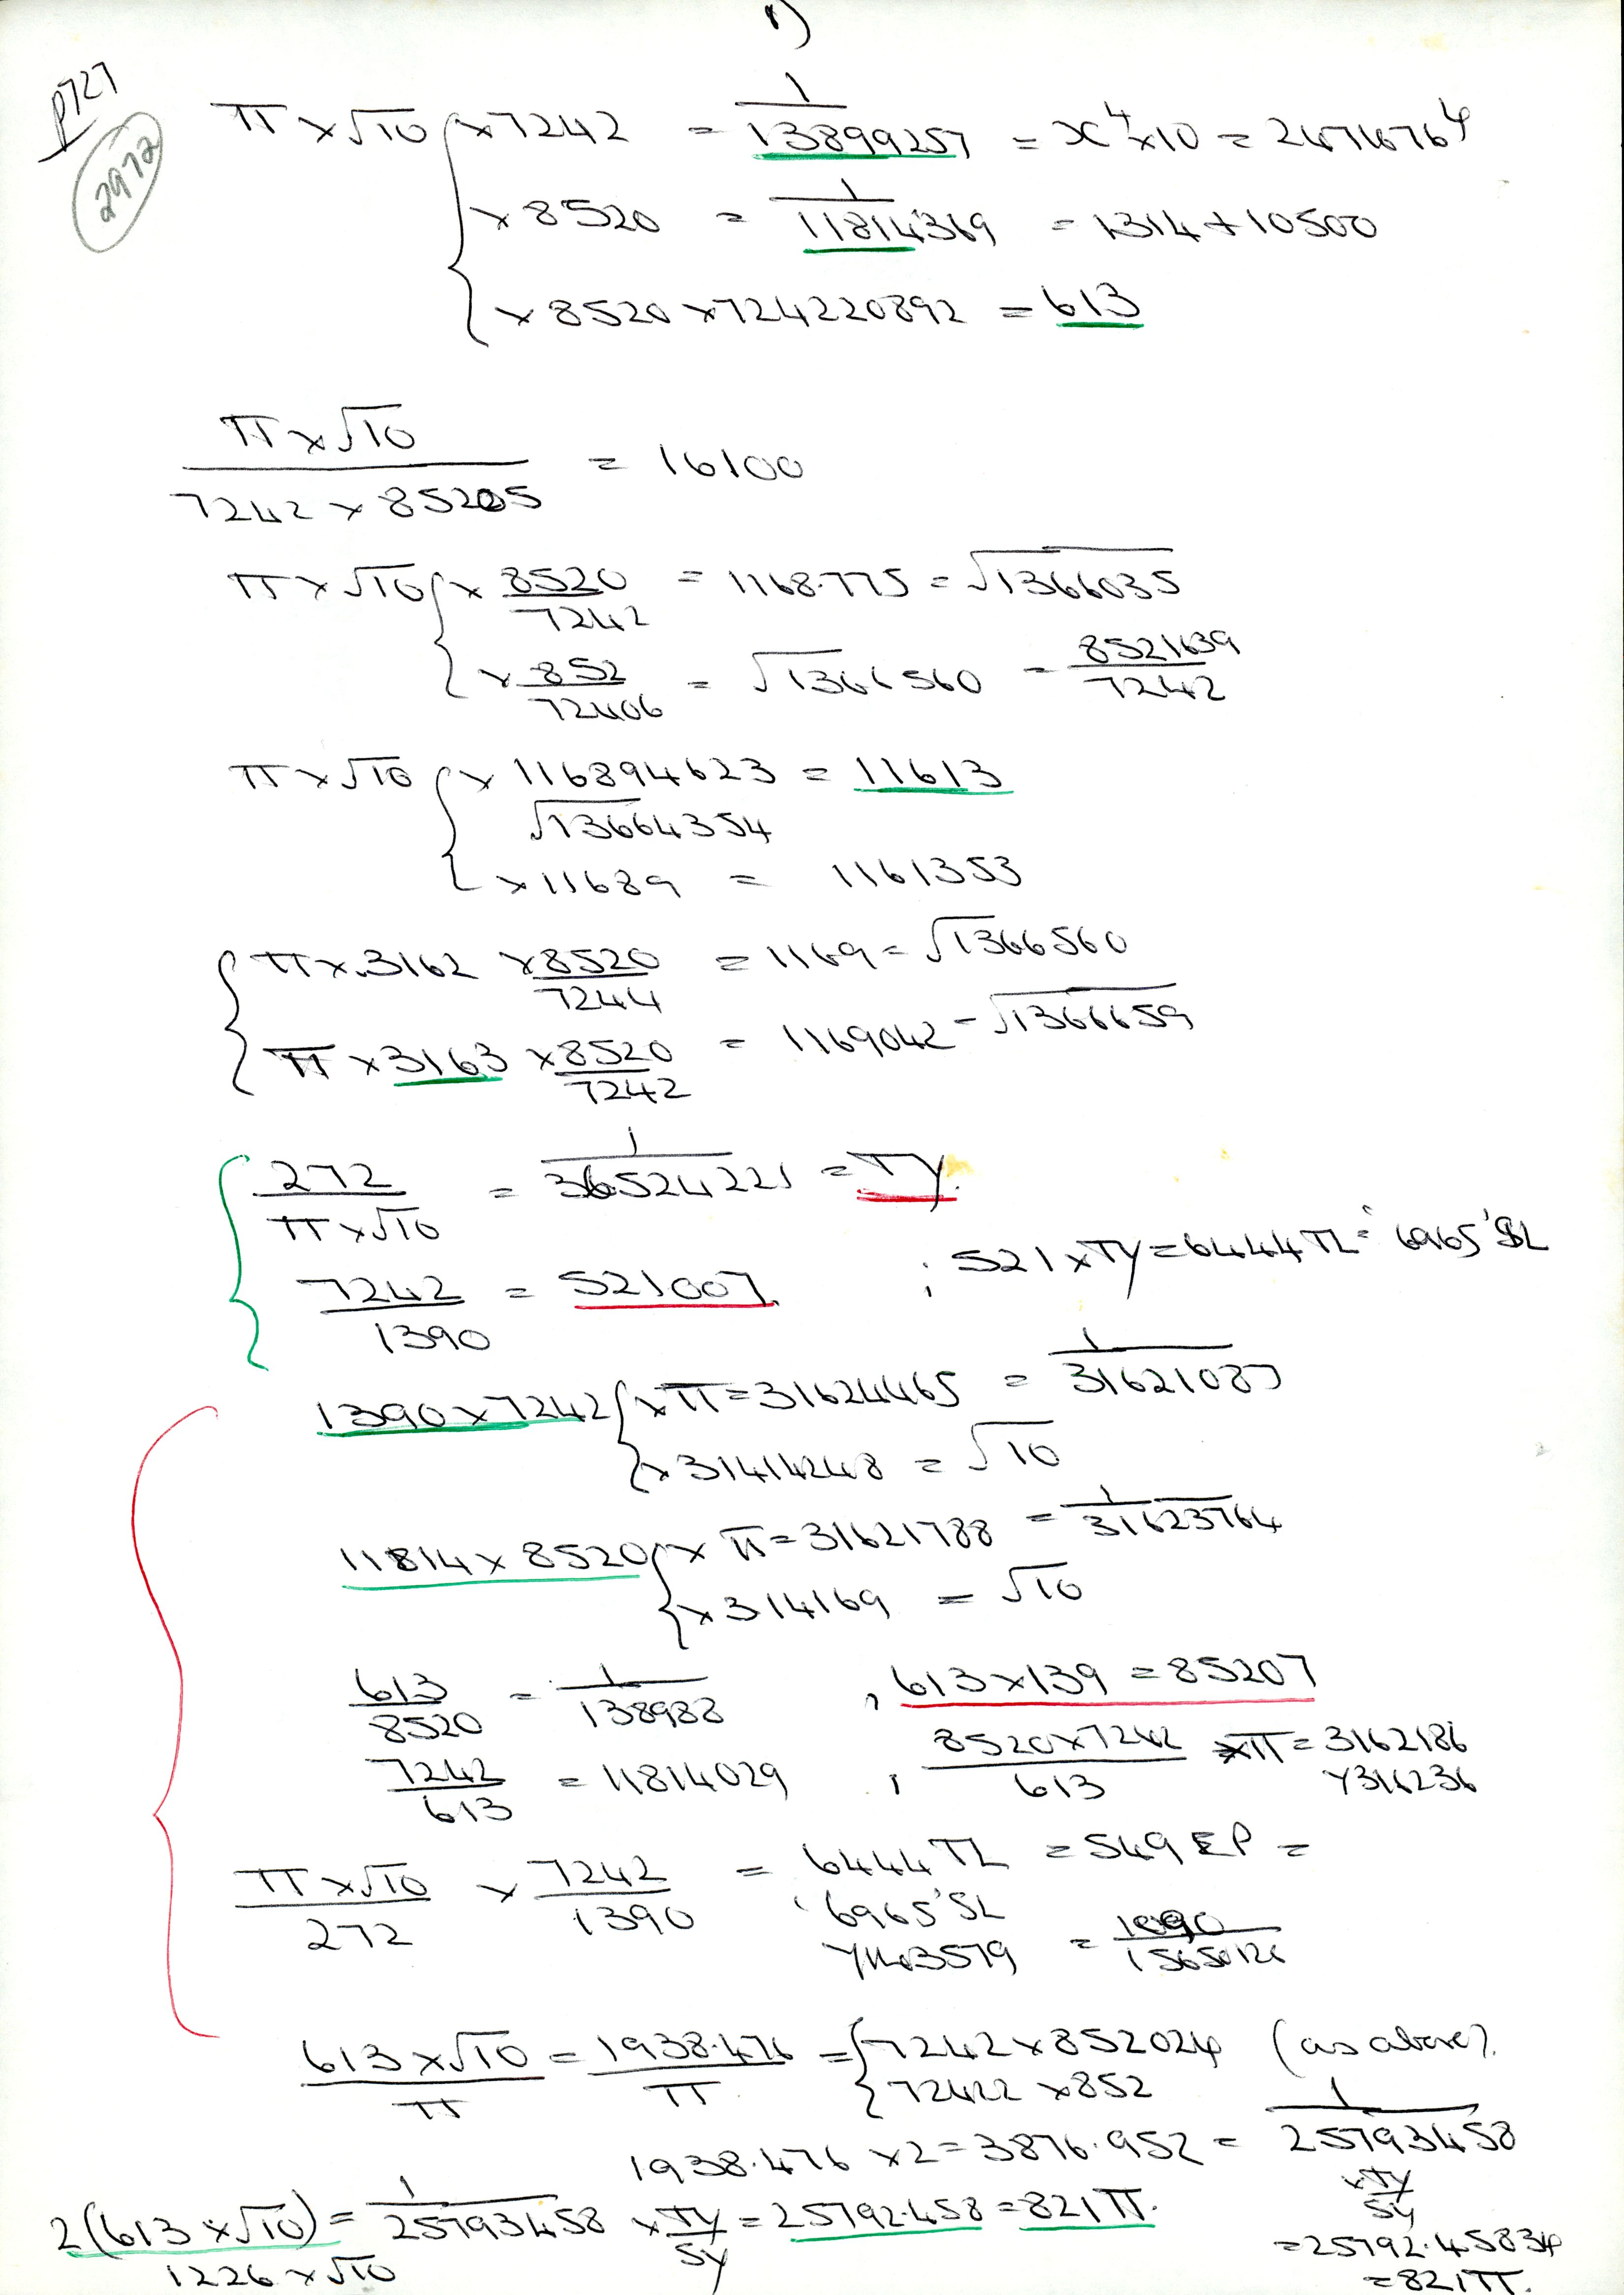 1)
p727
2972
π × √10 { × 7242 = 1/13899257 = x⁴ × 10 = 2676764
× 8520 = 1/11814369 = 1314 + 10500
× 8520 × 724220892 = 613
π × √10 / 7242 × 85205 = 16100
π × √10 { × 8520/7242 = 1168.775 = √1366035
× 852/72406 = √1366560 = 8521639/7242
π × √10 { × 116894623 = 11613
√13664354
× 11689 = 1161353
{ π × .3162 × 8520/7244 = 1169 = √1366560
π × 3163 × 8520/7242 = 1169042 = √1366659
{ 272 / π × √10 = 1/36524221 = TY.
7242/1390 = 521007 ; 521 × TY = 6444 TL = '6965' SL
1390 × 7242 { × π = 31624465 = 1/31621087
× 31414248 = √10
11814 × 8520 { × π = 31621788 = 1/31623764
× 314169 = √10
613/8520 = 1/138988 , 613 × 139 = 85207
7242/613 = 11814029 , 8520 × 7242 / 613 × π = 3162186
Y316236
π × √10 / 272 × 7242/1390 = 6444 TL = 549 EP =
'6965' SL
= 1/1565012
613 × √10 / π = 1938.476 / π = { 7242 × 852024 (as above).
72422 × 852
1938.476 × 2 = 3876.952 = 1/25793458
× TY/SY
2(613 × √10) = 1/25793458 × TY/SY = 25792.458 = 821π.
= 25792.45834
1226 × √10
= 821π.